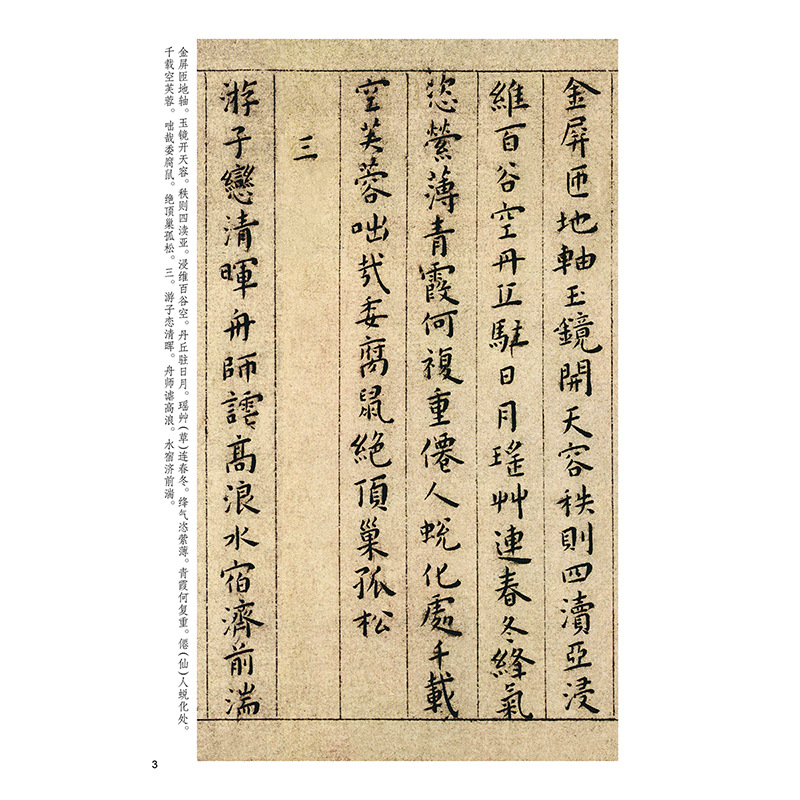 金屏匝地軸玉鏡開天容秩則四瀆亞浸
維百谷空丹丘駐日月瑤艸連春冬絳氣
恣縈薄青霞何複重僊人蛻化處千載
空芙蓉咄哉委腐鼠絕頂巢孤松
三
游子戀清暉舟師謔高浪水宿濟前湍
金屏匝地轴。玉镜开天容。秩则四渎亚。浸维百谷空。丹丘驻日月。瑶艸(草)连春冬。绛气恣萦薄。青霞何复重。僊(仙)人蜕化处。
千载空芙蓉。咄哉委腐鼠。绝顶巢孤松。三。游子恋清晖。舟师谑高浪。水宿济前湍。
3